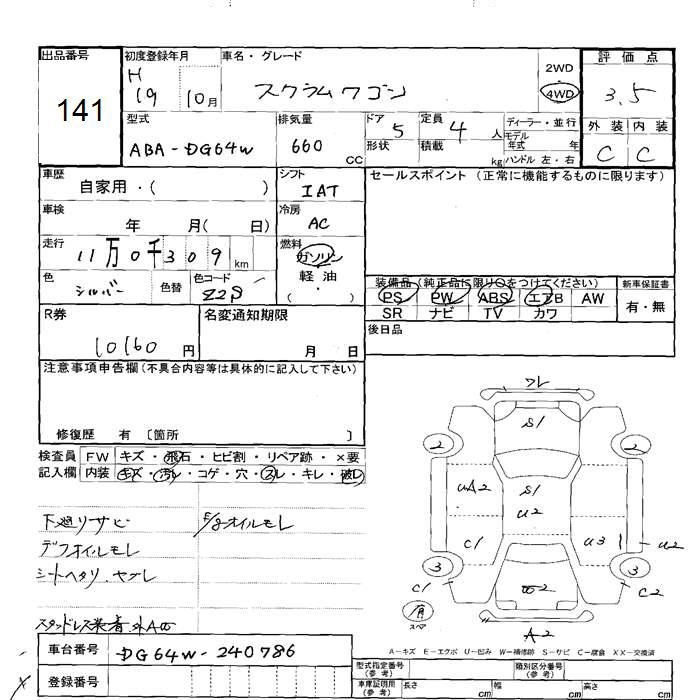 出品番号
141
初度登録年月
H
19 10月
車名・グレード
スクラムワゴン
2WD
4WD
評価点
3.5
型式
ABA-DG64W
排気量
660
CC
ドア 5
形状
定員 4 人
積載 kg
ディーラー・並行
モデル
年式 年
ハンドル 左・右
外装 内装
C C
車歴
自家用・( )
シフト
IAT
セールスポイント (正常に機能するものに限ります)
車検
年 月( 日)
冷房
AC
走行
11万0千309km
燃料
ガソリン
軽油
( ・ )
色
シルバー
色替
色コード
Z2S
装備品 (純正品に限り○をつけてください)
PS PW ABS エアB AW
SR ナビ TV カワ
新車保証書
有・無
R券
10160 円
名変通知期限
月 日
後日品
注意事項申告欄(不具合内容等は具体的に記入して下さい)
修復歴 有 〔箇所 〕
検査員
記入欄
FW キズ・飛石・ヒビ割・リペア跡・×要
内装 キズ・汚レ・コゲ・穴・スレ・キレ・破レ
下廻リサビ
E/gオイルモレ
デフオイルモレ
シートヘタリ、ヤブレ
スタッドレス装着
フレ
S1
2 2
UA2
S1
U2
C1
U3
U2
3 3
C1
C2
スペア
A2
A-キズ E-エクボ U-凹み W-補修跡 S-サビ C-腐食 XX-交換済
車台番号
DG64W-240786
登録番号
型式指定番号
(参考)
類別区分番号
(参考)
車庫証明用
(参考)
長さ cm
幅 cm
高さ cm